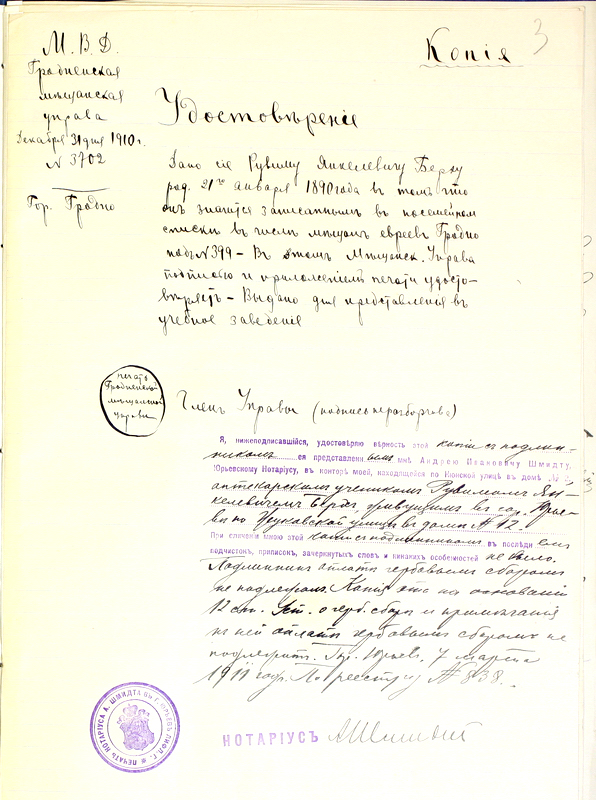 Копія
3
М. В. Д.
Гродненская
мѣщанская
управа
Декабря 31 дня 1910 г.
N 3702
Гор. Гродно
Удостовѣреніе
Дано сіе Рувиму Янкелевичу Берку
род. 21го января 1890 года въ томъ что
онъ значится записаннымъ въ посемейномъ
списки въ числѣ мѣщанъ евреевъ Гродно
подъ N 399 - Въ этомъ Мѣщанск. Управа
подписью и приложеніемъ печати удосто-
вѣряетъ - Выдано для представленія въ
учебное заведеніе
печать
Гродненской
мѣщанской
управы
Членъ Управы (подпись неразборчива)
Я, нижеподписавшійся, удостовѣряю вѣрность этой копіи съ подлин-
никомъ ея представленнымъ мнѣ Андрею Ивановичу Шмидту,
Юрьевскому Нотаріусу, въ конторѣ моей, находящейся по улицѣ въ домѣ №
аптекарскимъ ученикомъ Рувимомъ Ян-
келевичемъ живущимъ въ гор. Юрье-
вѣ по улицѣ въ домѣ № 12.
При сличеніи мною этой копіи съ подлинникомъ въ послѣднемъ
подчистокъ, приписокъ, зачеркнутыхъ словъ и никакихъ особенностей не было.
Подлинникъ оплатѣ гербовымъ сборомъ
не подлежитъ. Копія эта на основаніи
12 ст. Уст. о герб. сборѣ и примѣчанія
къ ней оплатѣ гербовымъ сборомъ не
подлежитъ. Гор. Юрьевъ, 7 марта
1911 года. По реестру № 838.
НОТАРІУСЪ АШмидт
ПЕЧАТЬ НОТАРІУСА А. ШМИДТА ВЪ Г. ЮРЬЕВѢ ЛИФЛ. Г.